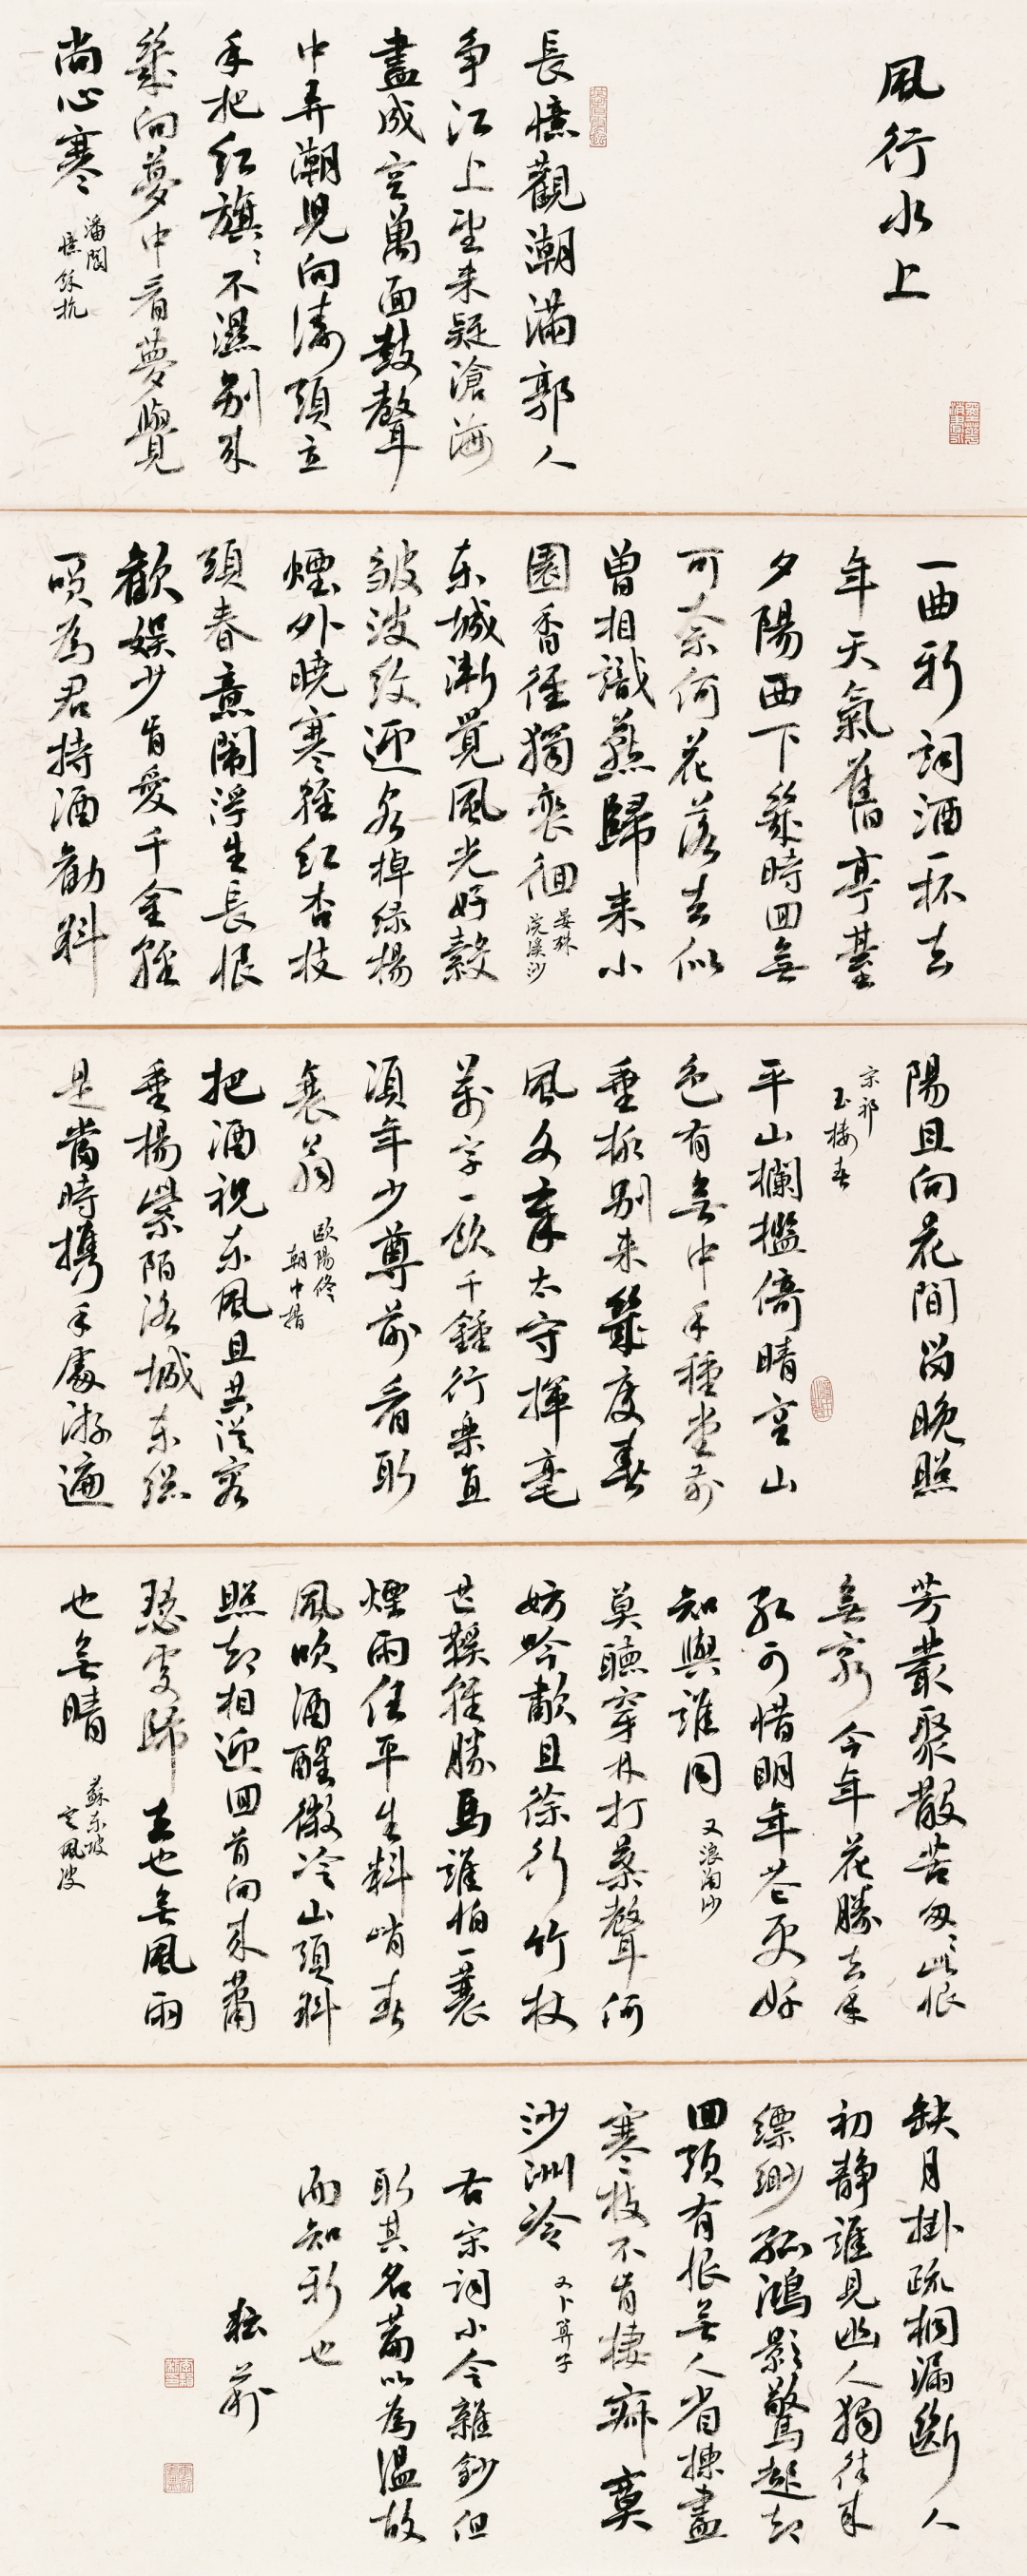 風行水上
長憶觀潮滿郭人
争江上望来疑滄海
盡成空萬面鼓聲
中弄潮児向濤頭立
手把红旗〻不濕别来
幾向夢中看夢覺
尚心寒
潘閬
憶餘杭
一曲新詞酒一杯去
年天氣舊亭臺
夕陽西下幾時回無
可奈何花落去似
曾相識燕歸来小
園香徑獨裵徊
晏殊
浣溪沙
东城漸覺風光好縠
皱波纹迎客棹绿楊
煙外曉寒輕红杏枝
頭春意鬧浮生長恨
歡娱少肯愛千金輕
一笑為君持酒勸斜
陽且向花間留晚照
宗祁
玉楼春
平山欄檻倚晴空山
色有無中手種堂前
垂柳别来幾度春
風文章太守揮毫
萬字一飲千鍾行樂直
須年少尊前看取
衰翁
歐陽修
朝中措
把酒祝东風且共從容
垂楊紫陌洛城东總
是當時携手處游遍
芳叢聚散苦匆〻此恨
無窮今年花勝去年
红可惜明年花更好
知與誰同
又浪淘沙
莫聽穿林打葉聲何
妨吟歗且徐行竹杖
芒鞵輕勝馬誰怕一蓑
煙雨任平生料峭春
風吹酒醒微冷山頭斜
照却相迎回首向来蕭
瑟處歸去也無風雨
也無晴
蘇东坡
定風波
缺月掛疏桐漏断人
初静誰見幽人獨往来
缥缈孤鴻影驚起却
回頭有恨無人省揀盡
寒枝不肯棲寂寞
沙洲冷
又卜算子
右宋詞小令雜鈔但
取其名篇以為温故
而知新也